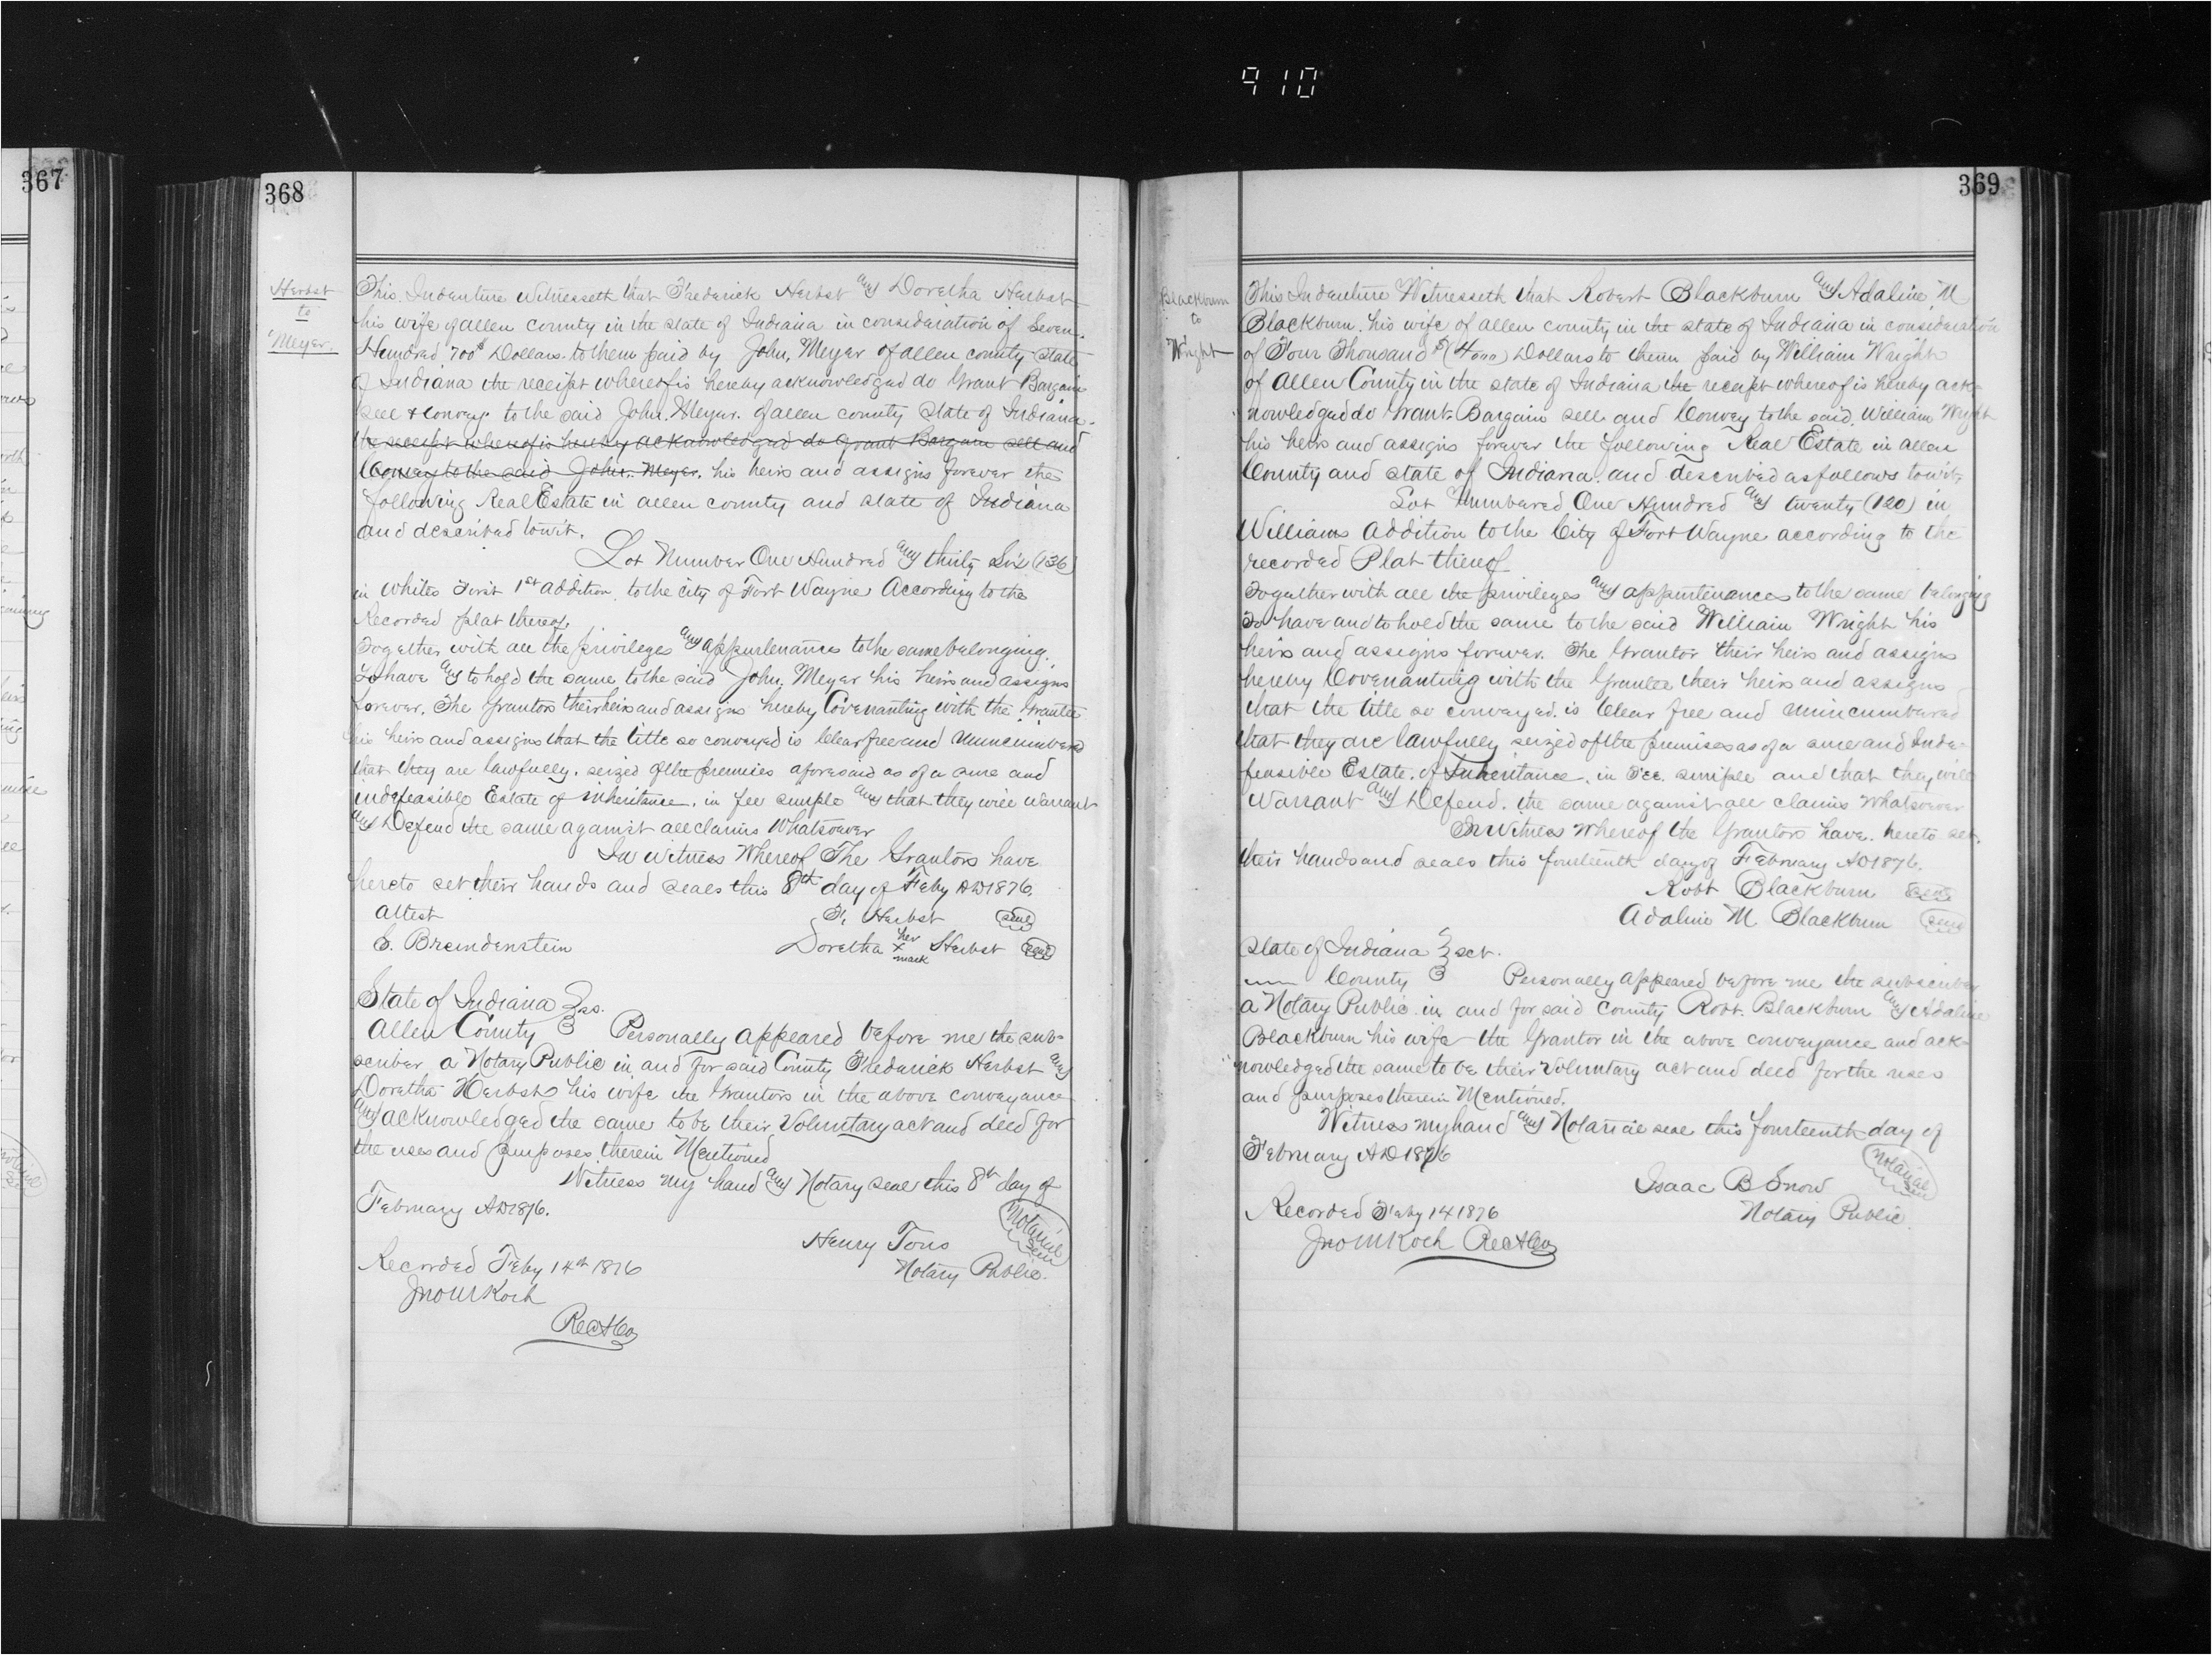 910
367
368
Herbst
to
Meyer.
This Indenture Witnesseth that Frederick Herbst and Doretha Herbst
his wife of allen county in the state of Indiana in consideration of Seven
Hundred 700$ Dollars to them paid by John Meyer of allen county State
of Indiana the receipt whereof is hereby acknowledged do Grant Bargain
sell & Convey to the said John Meyer of allen county State of Indiana
the receipt whereof is hereby acknowledged do Grant Bargain sell and
Convey to the said John Meyer, his heirs and assigns forever the
following Real Estate in allen county and state of Indiana
and described towit.
Lot Number One Hundred and thirty Six (136)
in Whites First 1st addition to the city of Fort Wayne According to the
Recorded plat thereof.
Together with all the privileges and appurtenances to the same belonging.
To have and to hold the same to the said John Meyer his heirs and assigns
forever. The Grantors their heirs and assigns hereby Covenanting with the Grantee
his heirs and assigns that the title so conveyed is Clear free and Unincumbered
that they are lawfully seized of the premises aforesaid as of a sure and
indefeasible Estate of inheritance, in fee simple and that they will warrant
and Defend the same against all claims Whatsoever
In witness Whereof The Grantors have
hereto set their hands and seals this 8th day of Feby AD 1876.
attest F. Herbst seal
E. Breindenstein Doretha her x mark Herbst seal
State of Indiana } ss.
Allen County } Personally appeared before me the sub-
scriber a Notary Public in and for said County Frederick Herbst and
Doretha Herbst his wife the Grantors in the above conveyance
and acknowledged the same to be their Voluntary act and deed for
the uses and purposes therein Mentioned
Witness my hand and Notary seal this 8th day of
February AD 1876.
Henry Tons Notarial Seal
Notary Public.
Recorded Feby 14th 1876
Jno M Koch
RecACo
369
Blackburn
to
Wright
This Indenture Witnesseth that Robert Blackburn and Adaline M
Blackburn his wife of allen county in the state of Indiana in consideration
of Four Thousand $(4000) Dollars to them paid by William Wright
of Allen County in the state of Indiana the receipt whereof is hereby ack-
nowledged do Grant Bargain sell and Convey to the said William Wright
his heirs and assigns forever the following Real Estate in allen
County and state of Indiana and described as follows towit,
Lot Numbered One Hundred and twenty (120) in
Williams Addition to the City of Fort Wayne according to the
recorded Plat thereof
Together with all the privileges and appurtenances to the same belonging
To have and to hold the same to the said William Wright his
heirs and assigns forever. The Grantor their heirs and assigns
hereby Covenanting with the Grantee their heirs and assigns
that the title so conveyed is Clear free and Unincumbered
that they are lawfully seized of the premises as of a sure and Inde-
feasible Estate of Inheritance in Fee simple and that they will
Warrant and Defend the same against all claims Whatsoever
In Witness Whereof the Grantors have hereto set
their hands and seals this fourteenth day of February AD 1876.
Robt Blackburn Seal
Adaline M Blackburn Seal
State of Indiana } sct.
County } Personally appeared before me the subscriber
a Notary Public in and for said County Robt. Blackburn and Adaline
Blackburn his wife the Grantor in the above conveyance and ack-
nowledged the same to be their Voluntary act and deed for the uses
and purposes therein Mentioned.
Witness my hand and Notarial seal this fourteenth day of
February AD 1876
Isaac B Snow Notarial Seal
Notary Public
Recorded Feby 14 1876
Jno M Koch RecACo